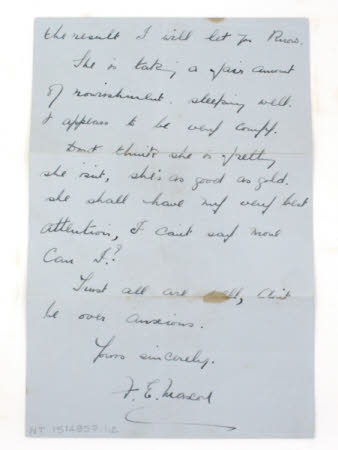 the result I will let you know.
She is taking a fair amount
of nourishment. sleeping well.
& appears to be very comfy.
Dont think she is fretting
she isnt, she's as good as gold.
she shall have my very best
attention, I cant say more
Can I?
Trust all are well, dont
be over anxious.
Yours sincerely.
F. E.
NT 1514857.1.2